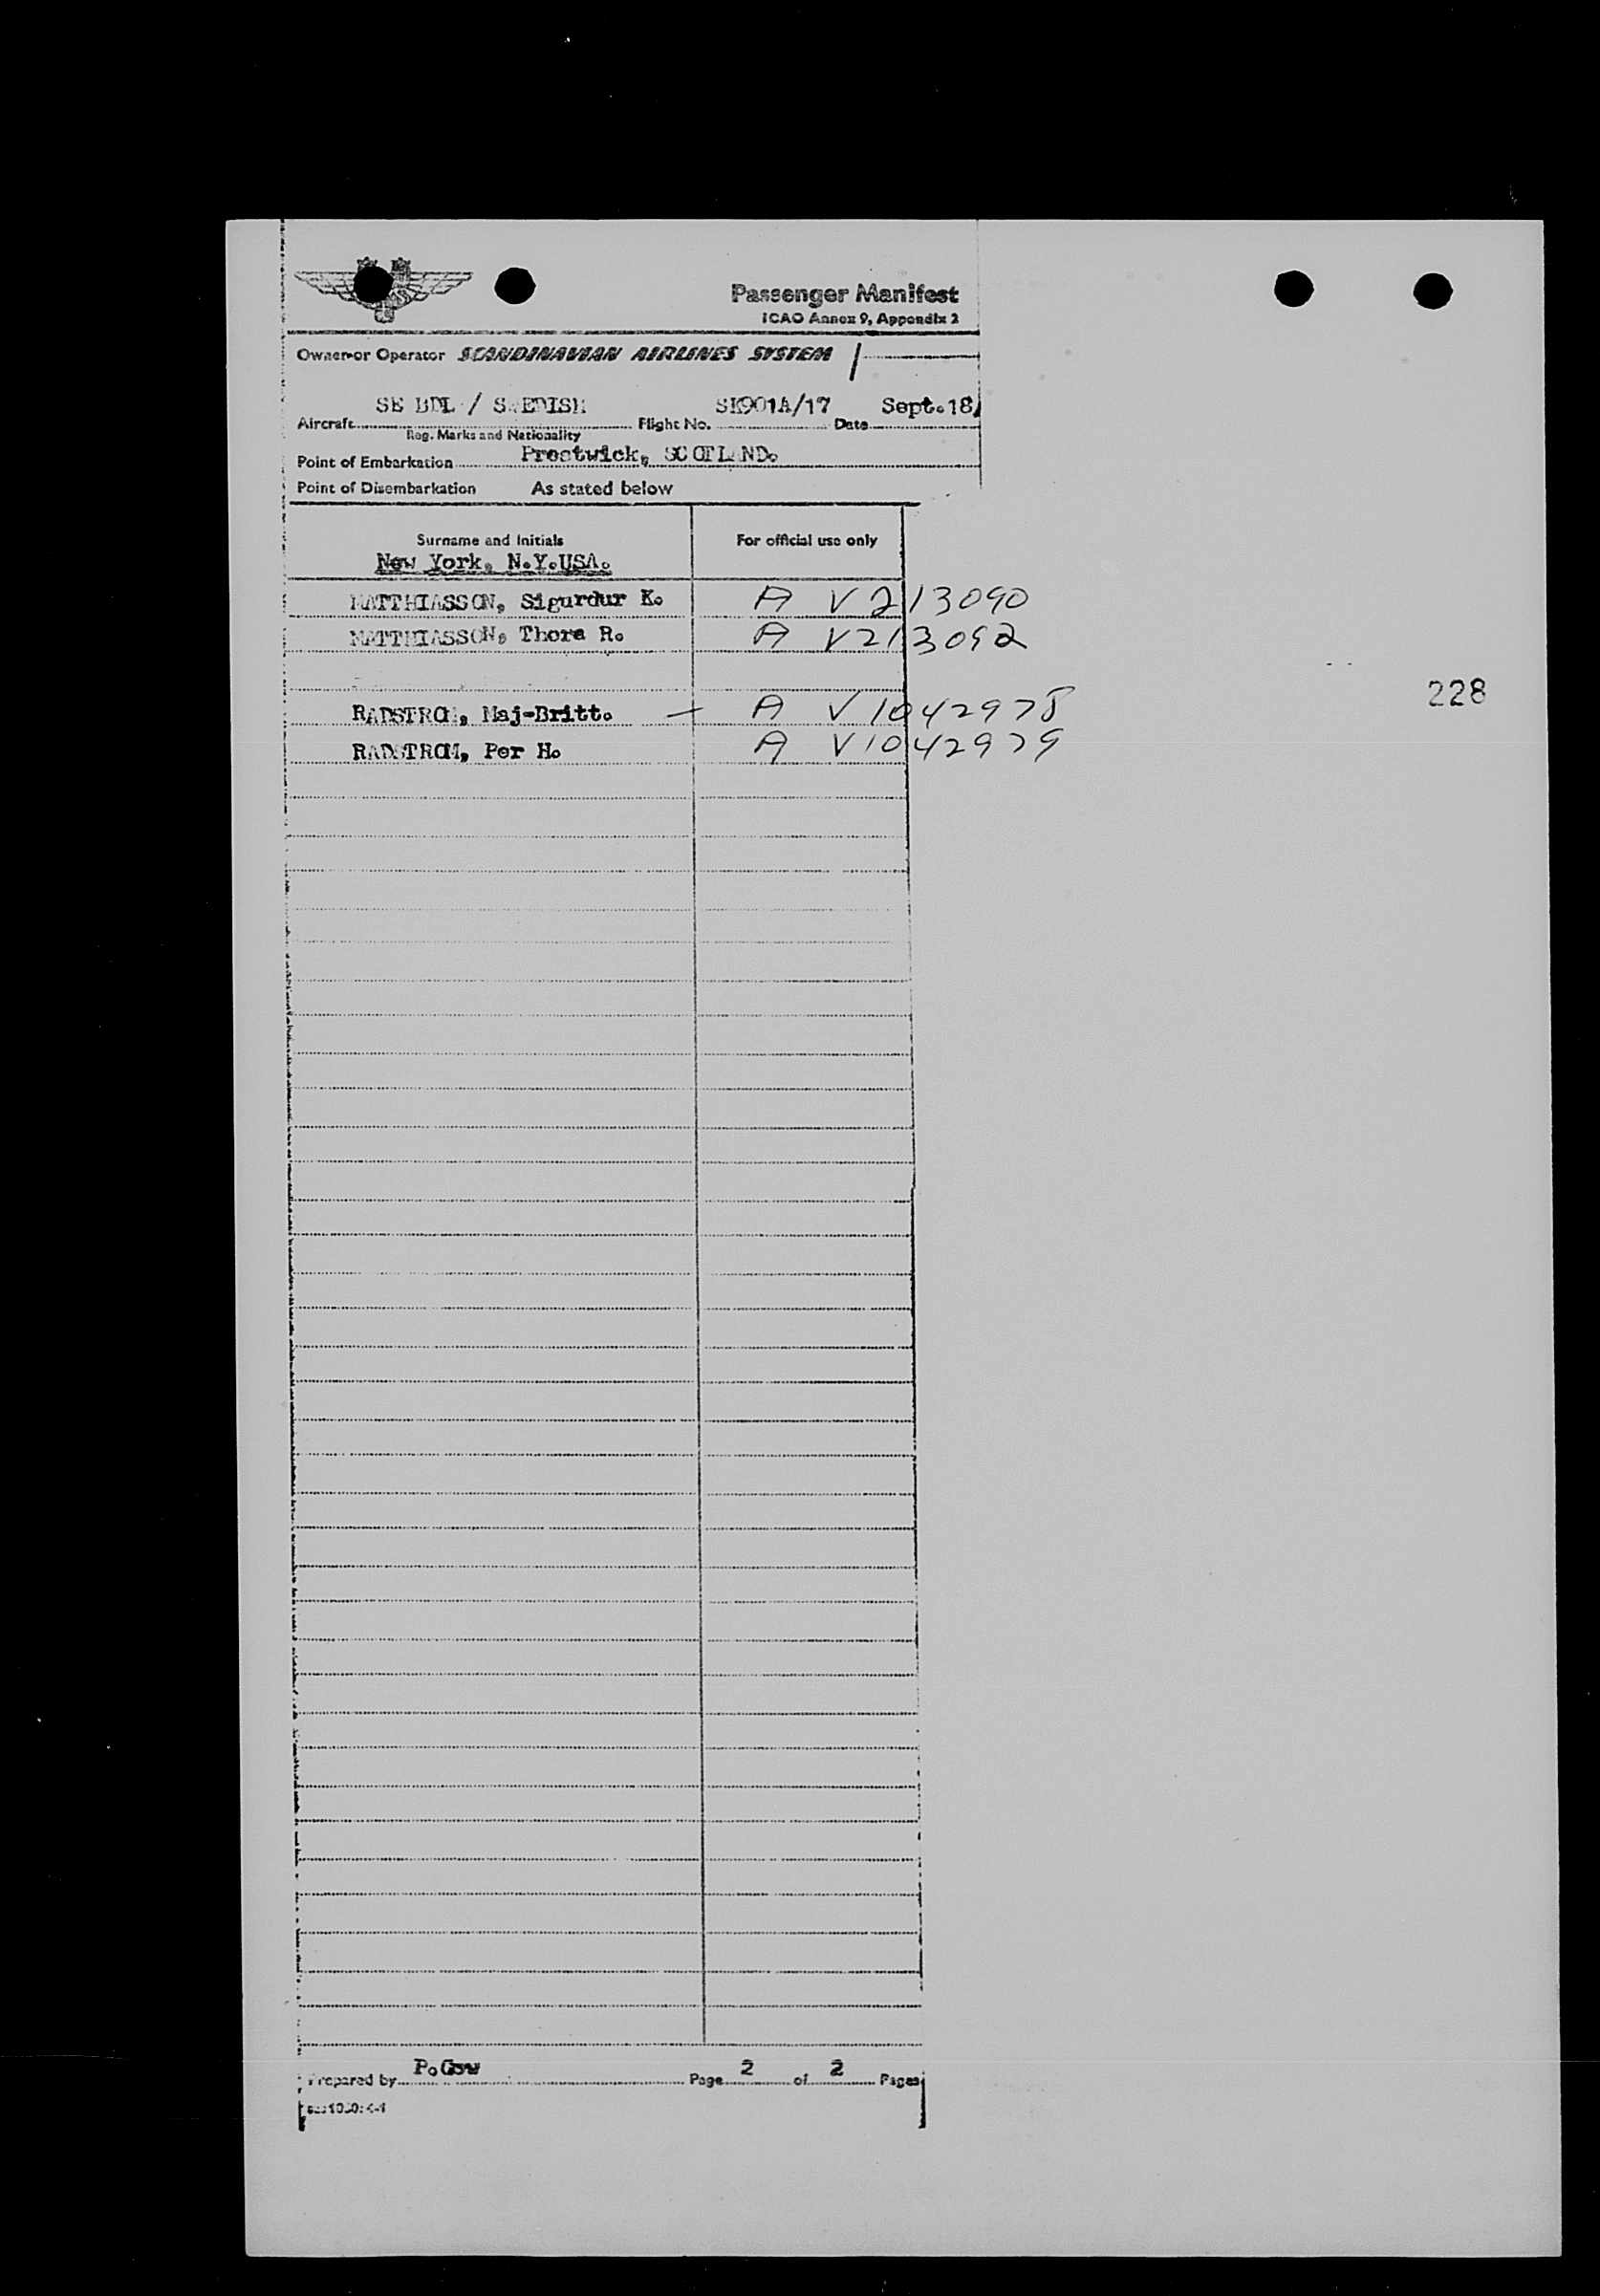 Passenger Manifest
ICAO Annex 9, Appendix 2
Owner or Operator SCANDINAVIAN AIRLINES SYSTEM
SE BDL / SWEDISH SK901A/17 Sept.18
Aircraft Flight No. Date
Reg. Marks and Nationality
Point of Embarkation Prestwick, SCOTLAND.
Point of Disembarkation As stated below
Surname and Initials For official use only
New York, N.Y.USA.
MATTHIASSON, Sigurdur K. A V 213090
MATTHIASSON, Thora R. A V213092
RADSTROM, Maj-Britt. — A V1042978
228
RADSTROM, Per H. A V1042979
P.Gow
Prepared by Page 2 of 2 Pages